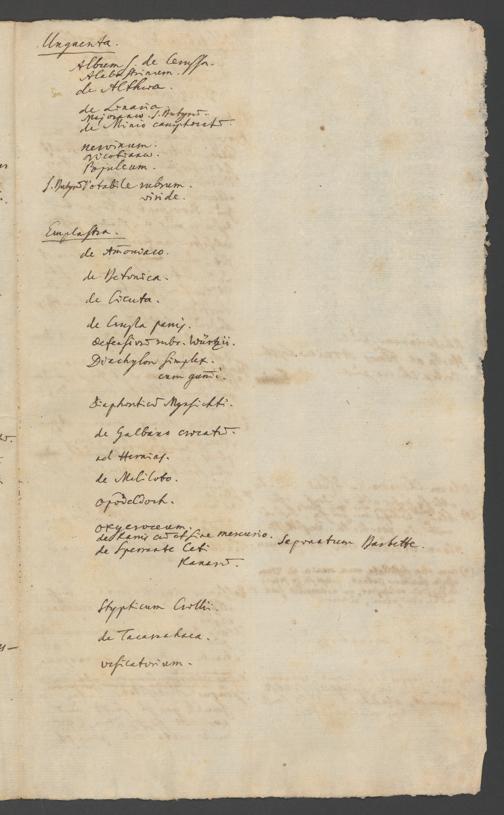 Unguenta.
Album s. de Cerussa.
Alabastrinum.
de Althæa.
de Linaria
Majoranæ s. Butyrū.
de Minio camphoratū.
nervinum.
nicotianæ.
Populeum.
s. Butyrū Potabile rubrum.
viride.
Emplastra.
de Am̄oniaco.
de Betonica.
de Cicuta.
de Crusta panis.
defensivū rubr. Würtzii.
Diachylon simplex.
cum gum̄i.
Diaphoreticū Mynsichti.
de Galbano crocatū.
ad Hernias.
de Meliloto.
opodeldoch.
oxycroceum.
de Ranis cū et sine mercurio.
Saponatum Barbette.
de Spermate Ceti
Ranarū.
Stypticum Crollii.
de Tacamahaca.
vesicatorium.